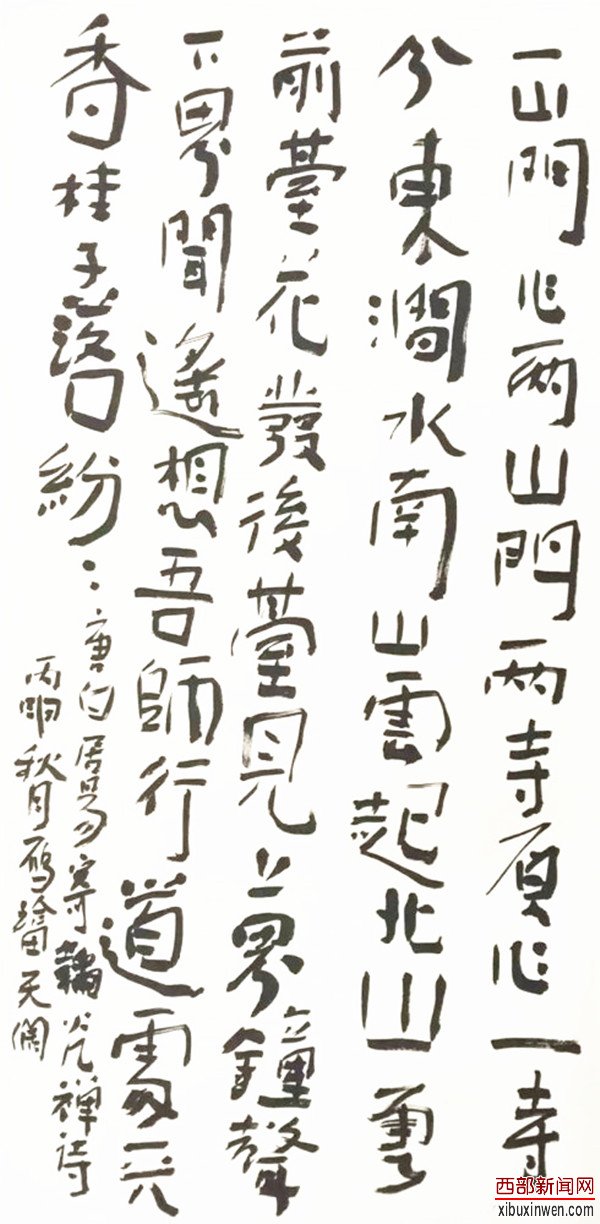 一山門作两山門两寺原从一寺
分東澗水南山雲起北山雲
前臺花發後臺見上界鐘聲
下界聞遙想吾師行道處天
香桂子落紛〻
唐白居易寄韜光禪詩
丙申秋月天
西部新闻网
xibuxinwen.com